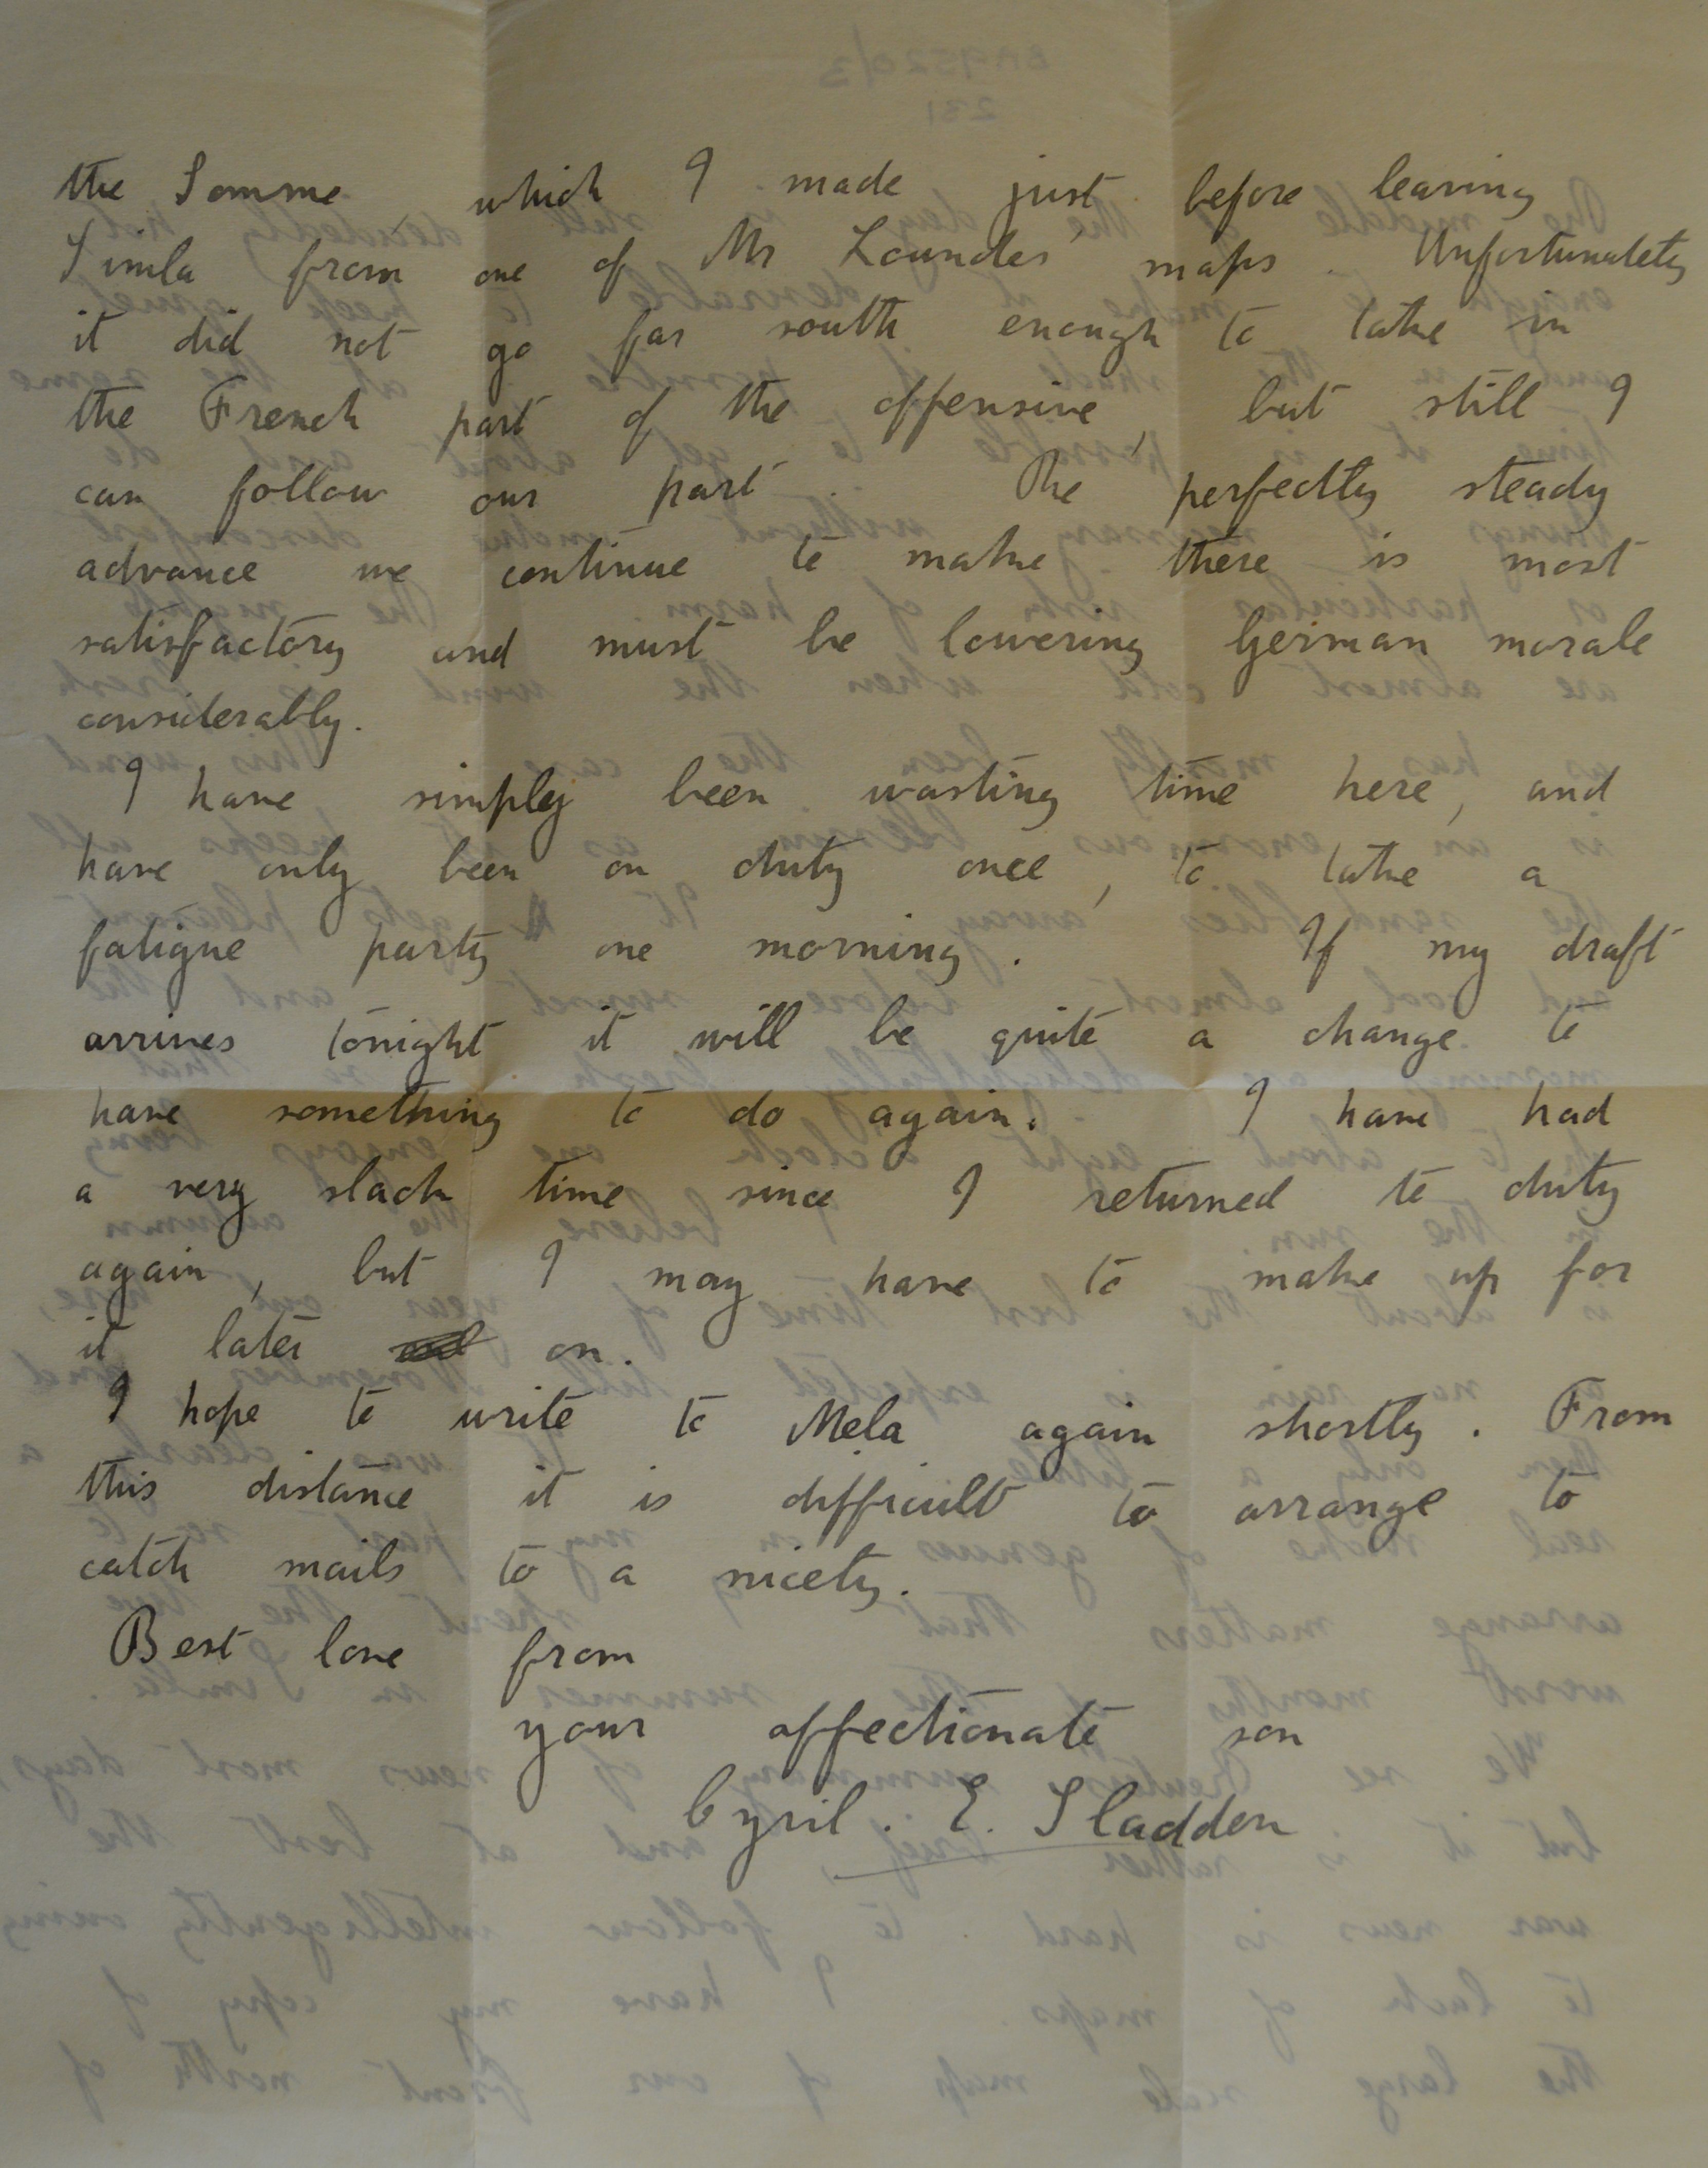 the Somme, which I made just before leaving
Simla from one of Mr Lowndes' maps. Unfortunately
it did not go far south enough to take in
the French part of the offensive, but still I
can follow our part. The perfectly steady
advance we continue to make there is most
satisfactory and must be lowering German morale
considerably.
I have simply been wasting time here, and
have only been on duty once, to take a
fatigue party one morning. If my draft
arrives tonight it will be quite a change to
have something to do again. I have had
a very slack time since I returned to duty
again, but I may have to make up for
it later on.
I hope to write to Mela again shortly. From
this distance it is difficult to arrange to
catch mails to a nicety.
Best love from
your affectionate son
Cyril. E. Sladden